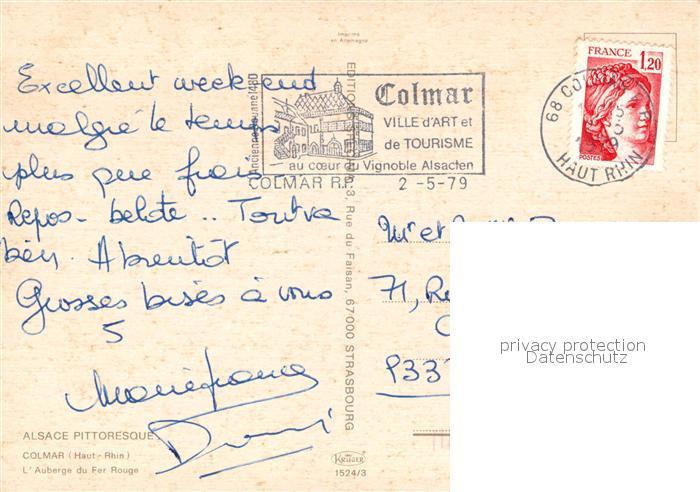 Imprimé
en Allemagne
Excellent week end
malgré le temps
plus que frais
Repos - belote .. Tout va
bien. A bientôt
Grosses bises à vous
5
Mariefrance
ALSACE PITTORESQUE
COLMAR (Haut-Rhin)
L'Auberge du Fer Rouge
ancienne douane 1480
Colmar
VILLE d'ART et
de TOURISME
au cœur du Vignoble Alsacien
COLMAR R.P. 2-5-79
3, Rue du Faisan, 67000 STRASBOURG
KRÜGER
1524/3
FRANCE
1,20
POSTES
68 COLMAR R.P.
HAUT RHIN
Mr et
71, Ru
privacy protection
Datenschutz